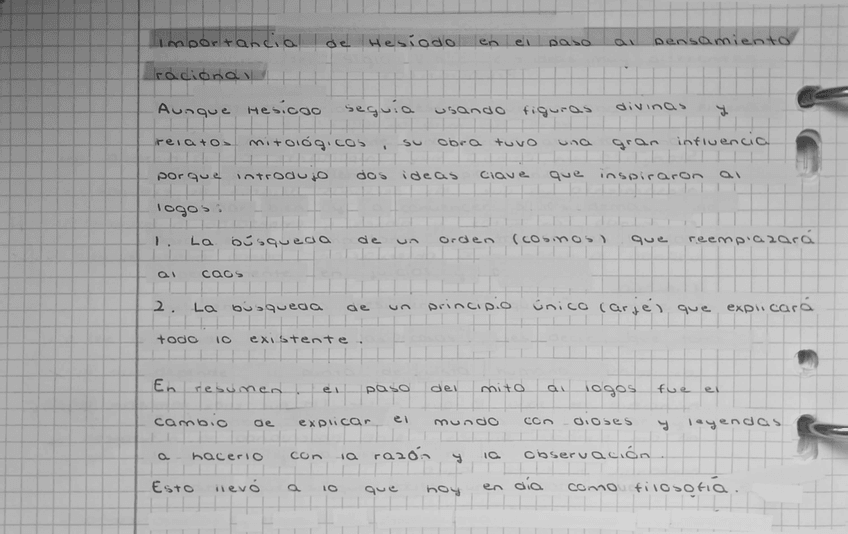 Importancia de Hesíodo en el paso al pensamiento
racional
Aunque Hesíodo seguía usando figuras divinas y
relatos mitológicos, su obra tuvo una gran influencia
porque introdujo dos ideas clave que inspiraron al
logos:
1. La búsqueda de un orden (cosmos) que reemplazará
al caos
2. La búsqueda de un principio único (arjé) que explicará
todo lo existente.
En resumen, el paso del mito al logos fue el
cambio de explicar el mundo con dioses y leyendas
a hacerlo con la razón y la observación.
Esto llevó a lo que hoy en día como filosofía.